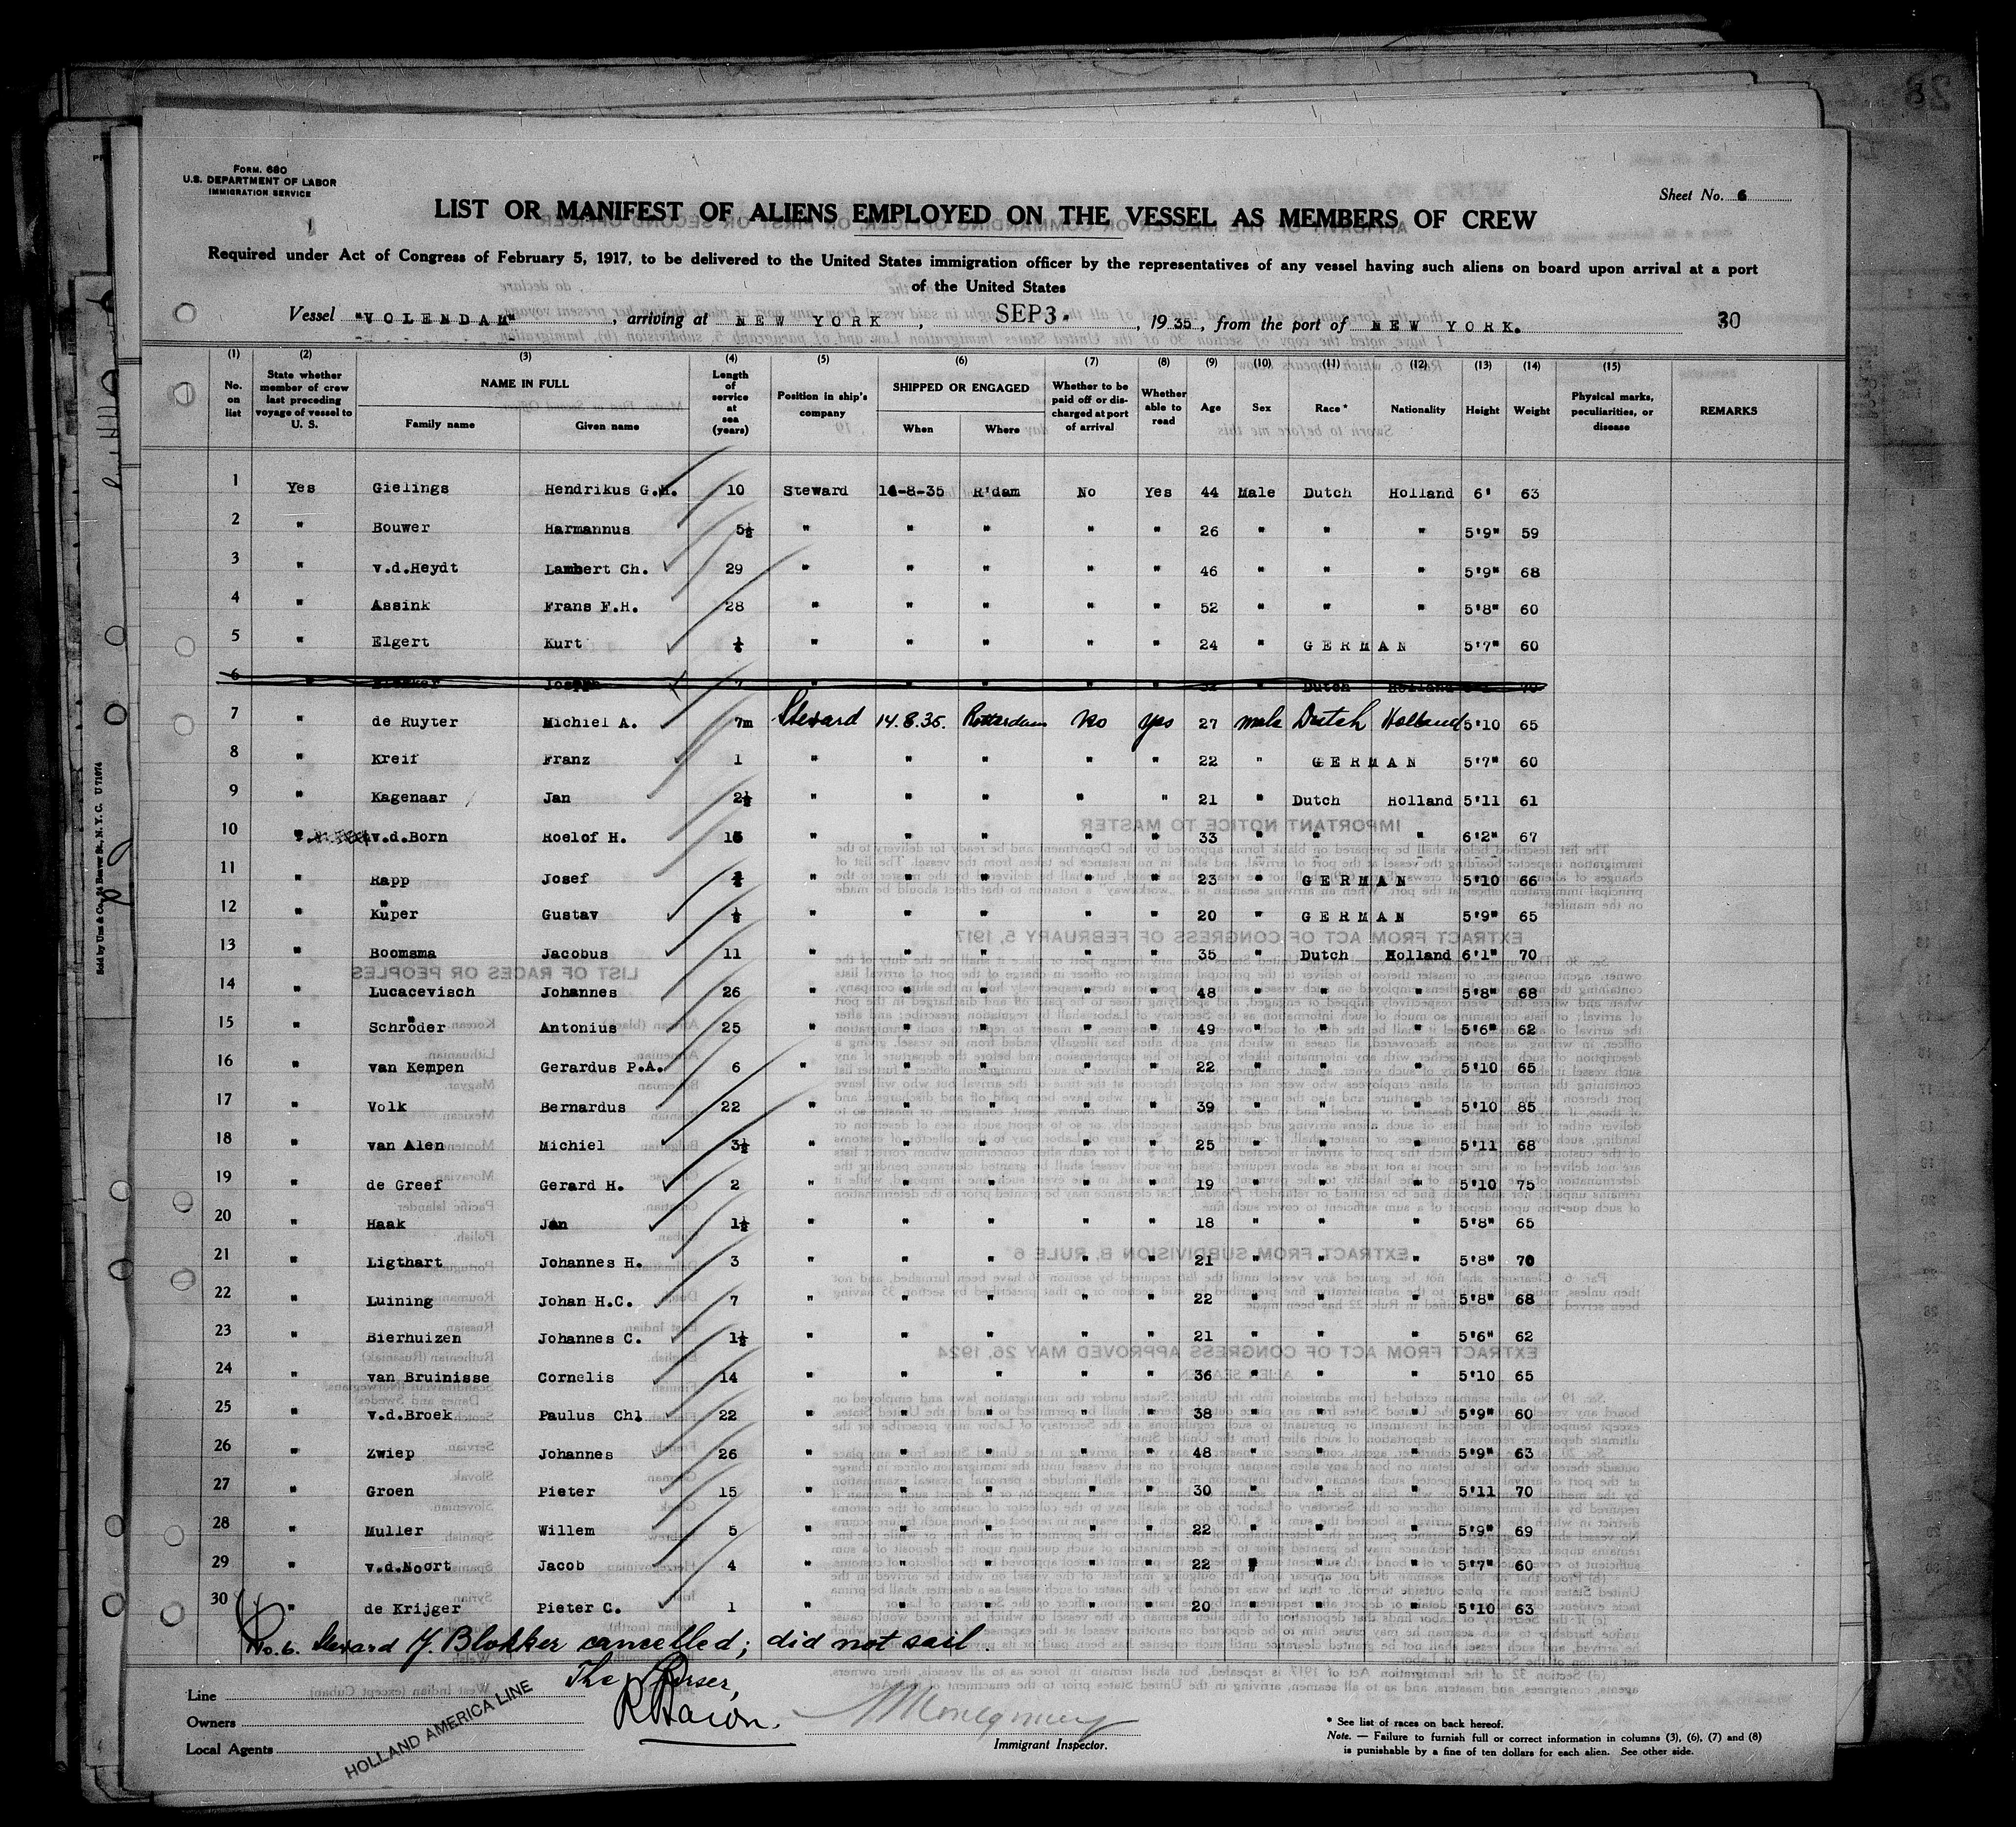 FORM. 680
U.S. DEPARTMENT OF LABOR
IMMIGRATION SERVICE
Sheet No. 6
LIST OR MANIFEST OF ALIENS EMPLOYED ON THE VESSEL AS MEMBERS OF CREW
Required under Act of Congress of February 5, 1917, to be delivered to the United States immigration officer by the representatives of any vessel having such aliens on board upon arrival at a port
of the United States
Vessel "VOLENDAM", arriving at NEW YORK, SEP 3. , 1935, from the port of NEW YORK. 30
(1) (2) (3) (4) (5) (6) (7) (8) (9) (10) (11) (12) (13) (14) (15)
No. on list State whether member of crew last preceding voyage of vessel to U. S. NAME IN FULL Family name Given name Length of service at sea (years) Position in ship's company SHIPPED OR ENGAGED When Where Whether to be paid off or discharged at port of arrival Whether able to read Age Sex Race* Nationality Height Weight Physical marks, peculiarities, or disease REMARKS
1 Yes Gielings Hendrikus G.H. 10 Steward 14-8-35 R'dam No Yes 44 Male Dutch Holland 6' 63
2 " Bouwer Harmannus 5½ " " " " " 26 " " " 5'9" 59
3 " v.d.Heydt Lambert Ch. 29 " " " " " 46 " " " 5'9" 68
4 " Assink Frans F.H. 28 " " " " " 52 " " " 5'8" 60
5 " Elgert Kurt ½ " " " " " 24 " GERMAN 5'7" 60
6 " Blokker Joseph 7 " " " " " " Dutch Holland 70
7 " de Ruyter Michiel A. 7m Steward 14.8.35. Rotterdam No yes 27 male Dutch Holland 5'10 65
8 " Kreif Franz 1 " " " " " 22 " GERMAN 5'7" 60
9 " Kagenaar Jan 2½ " " " " " 21 " Dutch Holland 5'11 61
10 " v.d.Born Roelof H. " " " " " 33 " " " 6'2" 67
11 " Rapp Josef " " " " " 23 " GERMAN 5'10 66
12 " Küper Gustav ½ " " " " " 20 " GERMAN 5'9" 65
13 " Boomsma Jacobus 11 " " " " " 35 " Dutch Holland 6'1" 70
14 " Lucacevisch Johannes 26 " " " " " 48 " " " 5'8" 68
15 " Schröder Antonius 25 " " " " " 49 " " " 5'6" 62
16 " van Kempen Gerardus P.A. 6 " " " " " 22 " " " 5'10 65
17 " Volk Bernardus 22 " " " " " 39 " " " 5'10 85
18 " van Alen Michiel 3½ " " " " " 25 " " " 5'11 68
19 " de Greef Gerard H. 2 " " " " " 19 " " " 5'10 75
20 " Haak Jan 1½ " " " " " 18 " " " 5'8" 65
21 " Ligthart Johannes H. 3 " " " " " 21 " " " 5'8" 70
22 " Luining Johan H.C. 7 " " " " " 22 " " " 5'8" 68
23 " Bierhuizen Johannes C. 1½ " " " " " 21 " " " 5'6" 62
24 " van Bruinisse Cornelis 14 " " " " " 36 " " " 5'10 65
25 " v.d.Broek Paulus Chl 22 " " " " " 38 " " " 5'9" 60
26 " Zwiep Johannes 26 " " " " " 48 " " " 5'9" 63
27 " Groen Pieter 15 " " " " " 30 " " " 5'11 70
28 " Muller Willem 5 " " " " " 22 " " " 5'9" 69
29 " v.d.Noort Jacob 4 " " " " " 22 " " " 5'7" 60
30 " de Krijger Pieter C. 1 " " " " " 20 " " " 5'10 63
No. 6. Steward J. Blokker cancelled; did not sail.
The Purser,
Line
Owners
Local Agents
HOLLAND AMERICA LINE
Montgomery
Immigrant Inspector.
* See list of races on back hereof.
Note. — Failure to furnish full or correct information in columns (3), (6), (7) and (8)
is punishable by a fine of ten dollars for each alien. See other side.
Sold by Unz & Co., 24 Beaver St., N. Y. C. U 71074